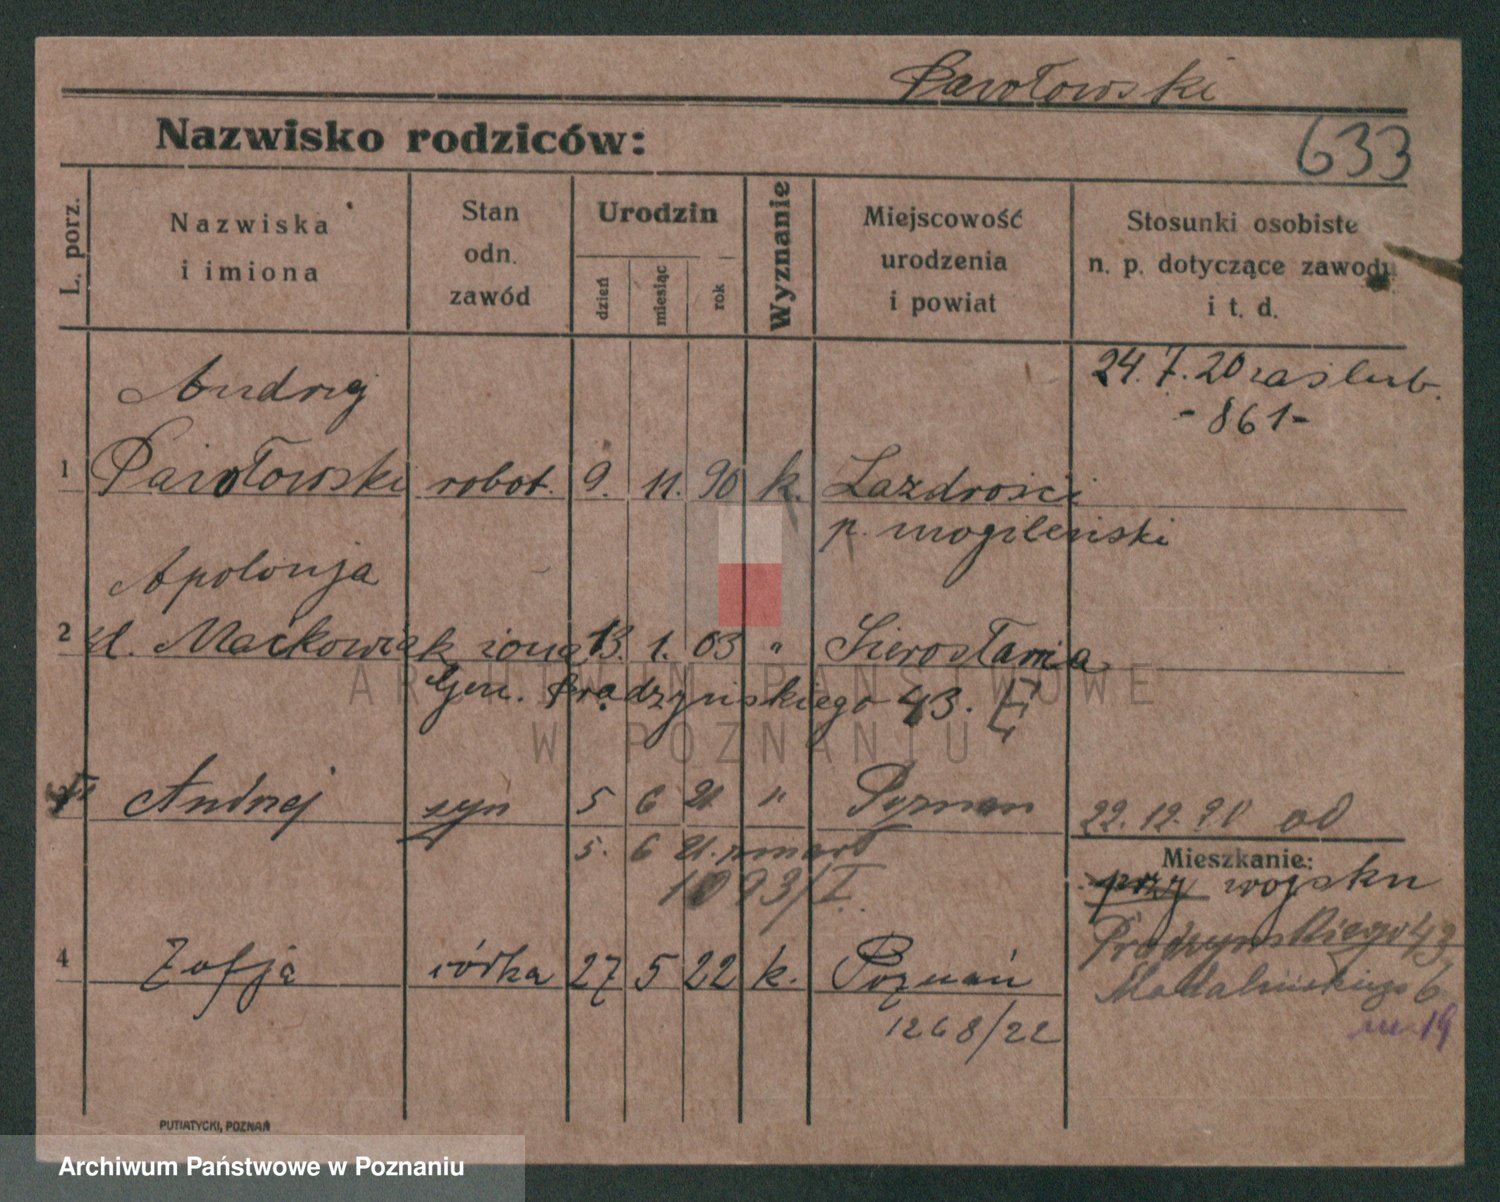 Pawłowski
Nazwisko rodziców:
633
L. porz.
Nazwiska
i imiona
Stan
odn.
zawód
Urodzin
dzień
miesiąc
rok
Wyznanie
Miejscowość
urodzenia
i powiat
Stosunki osobiste
n. p. dotyczące zawodu
i t. d.
24. 7. 20 zaślub.
- 861 -
Andrzej
1 Pawłowski robot. 9. 11. 90 k. Zazdrości
p. mogileński
Apolonja
2 d. Maćkowiak żona 13. 1. 03 " Sierosław
Gen. Prądzyńskiego 43.
Andrzej syn 5 6 21 " Poznań
22. 12. 20 od
5. 6 21. zmarł
1093/I.
Mieszkanie:
przy wojsku
Prądzyńskiego 43
4 Zofja córka 27 5 22 k. Poznań
Madalińskiego 6
1268/22
m. 19
PUTIATYCKI, POZNAŃ
ARCHIWUM PAŃSTWOWE
W POZNANIU
Archiwum Państwowe w Poznaniu